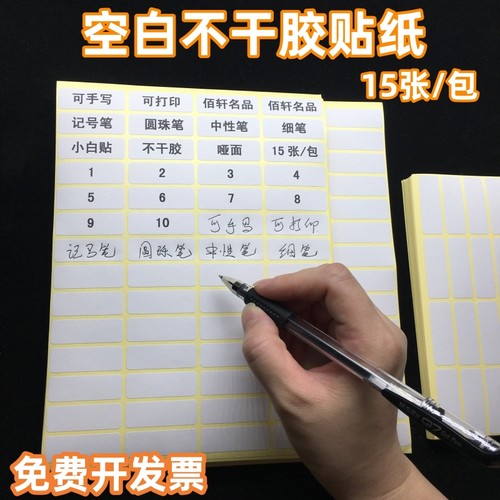 空白不干胶贴纸
15张/包
可手写 可打印 佰轩名品 佰轩名品
记号笔 圆珠笔 中性笔 细笔
小白贴 不干胶 哑面 15张/包
1 2 3 4
5 6 7 8
9 10 可手写 可打印
记号笔 圆珠笔 中性笔 细笔
免费开发票